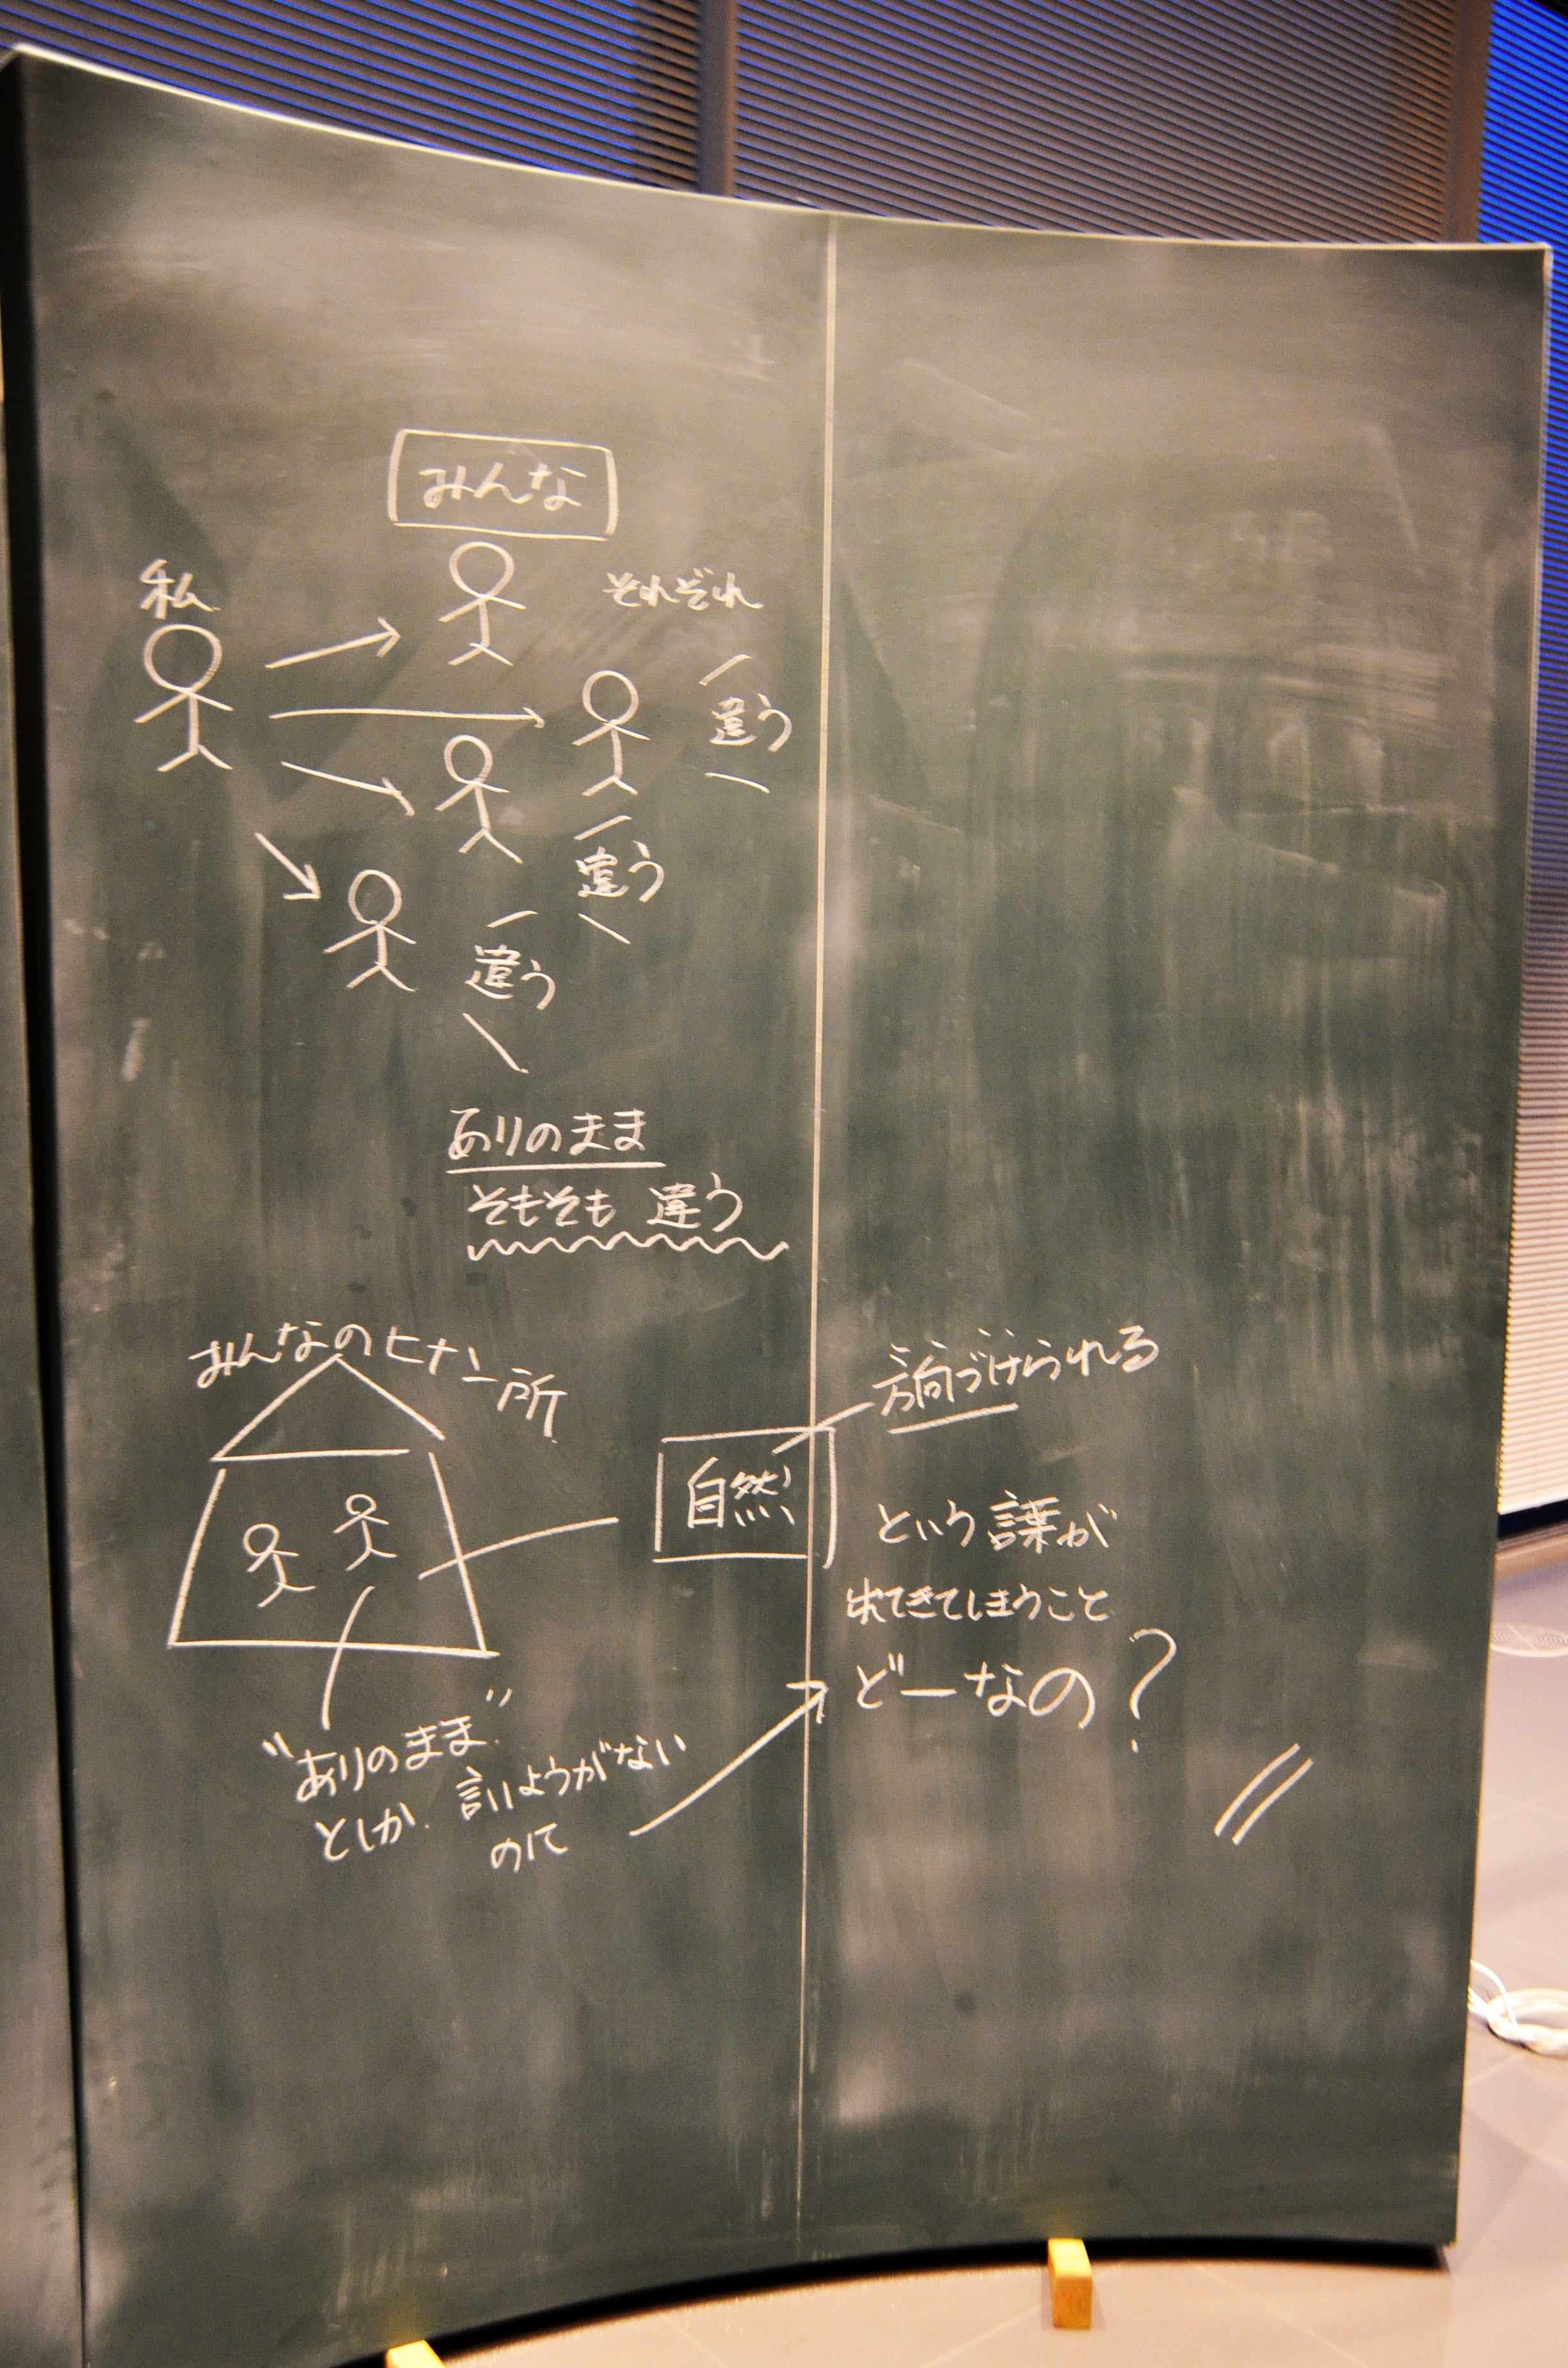 みんな
私
それぞれ
違う
違う
違う
ありのまま
そもそも 違う
みんなのヒナン所
方向づけられる
自然
という言葉が
出てきてしまうこと
どーなの?
"ありのまま"
としか 言いようがない
のに